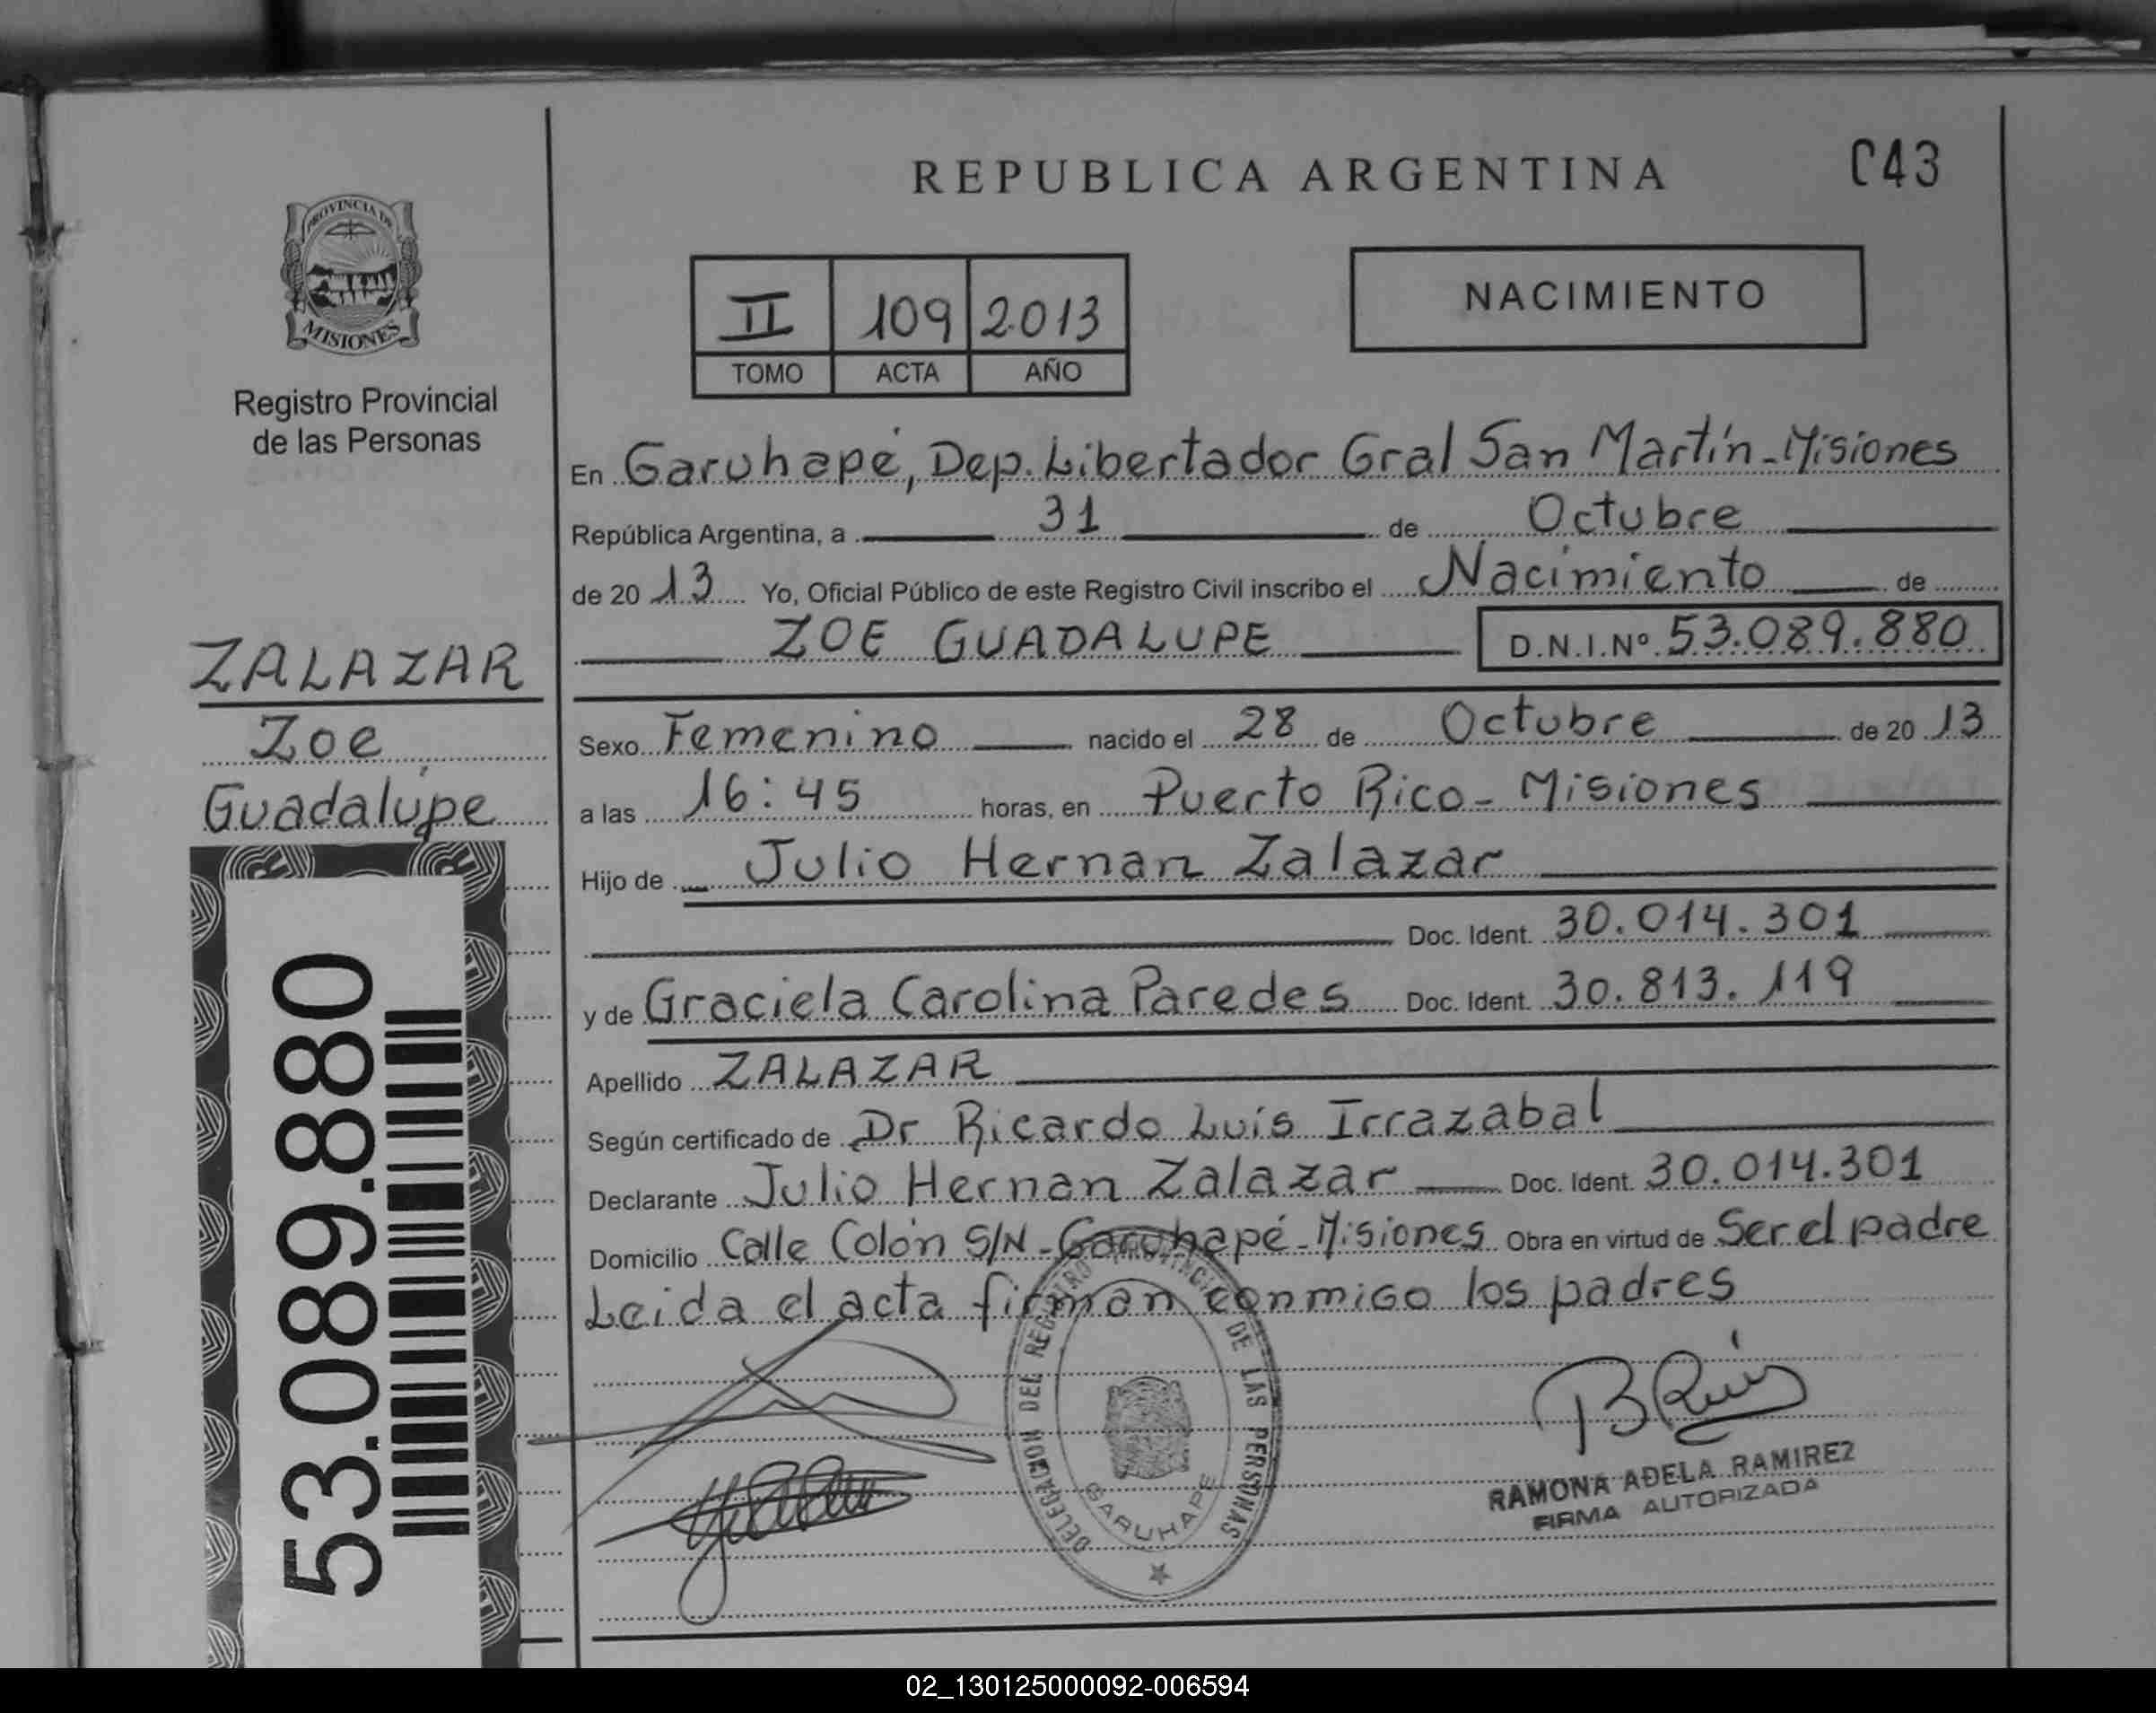 REPUBLICA ARGENTINA
C43
PROVINCIA DE
MISIONES
Registro Provincial
de las Personas
II 109 2013
TOMO ACTA AÑO
NACIMIENTO
En Garuhapé, Dep. Libertador Gral San Martín-Misiones
República Argentina, a 31 de Octubre
de 20 13 Yo, Oficial Público de este Registro Civil inscribo el Nacimiento de
ZOE GUADALUPE D.N.I.Nº 53.089.880
ZALAZAR
Zoe
Guadalupe
53.089.880
Sexo Femenino nacido el 28 de Octubre de 20 13
a las 16:45 horas, en Puerto Rico - Misiones
Hijo de Julio Hernan Zalazar
Doc. Ident. 30.014.301
y de Graciela Carolina Paredes Doc. Ident. 30.813.119
Apellido ZALAZAR
Según certificado de Dr Ricardo Luis Irrazabal
Declarante Julio Hernan Zalazar Doc. Ident. 30.014.301
Domicilio Calle Colón S/N - Garuhapé - Misiones Obra en virtud de Ser el padre
Leida el acta firman conmigo los padres
DELEGACION DEL REGISTRO PROVINCIAL DE LAS PERSONAS
GARUHAPE
RAMONA ADELA RAMIREZ
FIRMA AUTORIZADA
02_130125000092-006594